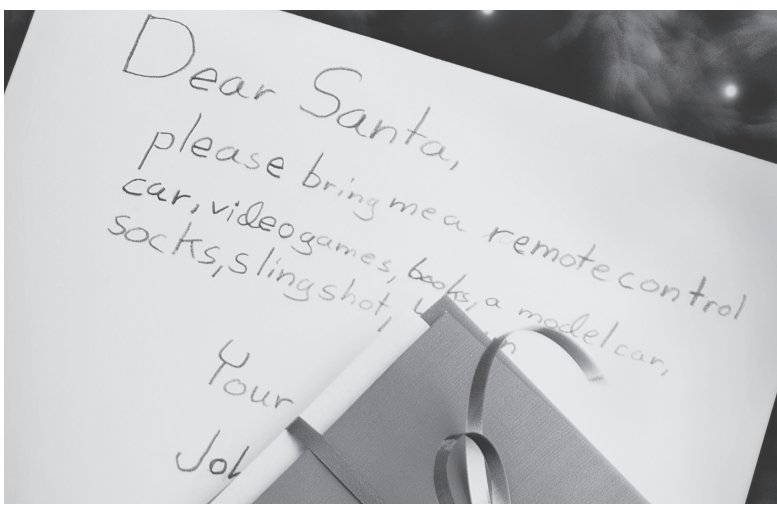 Dear Santa,
please bring me a remote control
car, videogames, books, a model car,
socks, slingshot,
Your